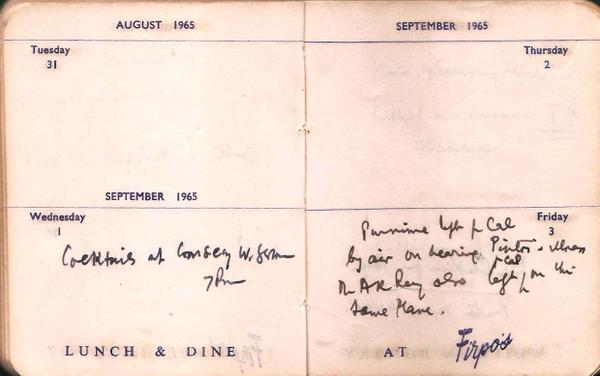 AUGUST 1965
Tuesday
31
SEPTEMBER 1965
Wednesday
1
Cocktails at
7 Pm
LUNCH & DINE
SEPTEMBER 1965
Thursday
2
Friday
3
Purnima left f Cal
by air on hearing Pinto's illness
Mr A K Ray also left f Cal on the
same Plane.
AT Firpo's